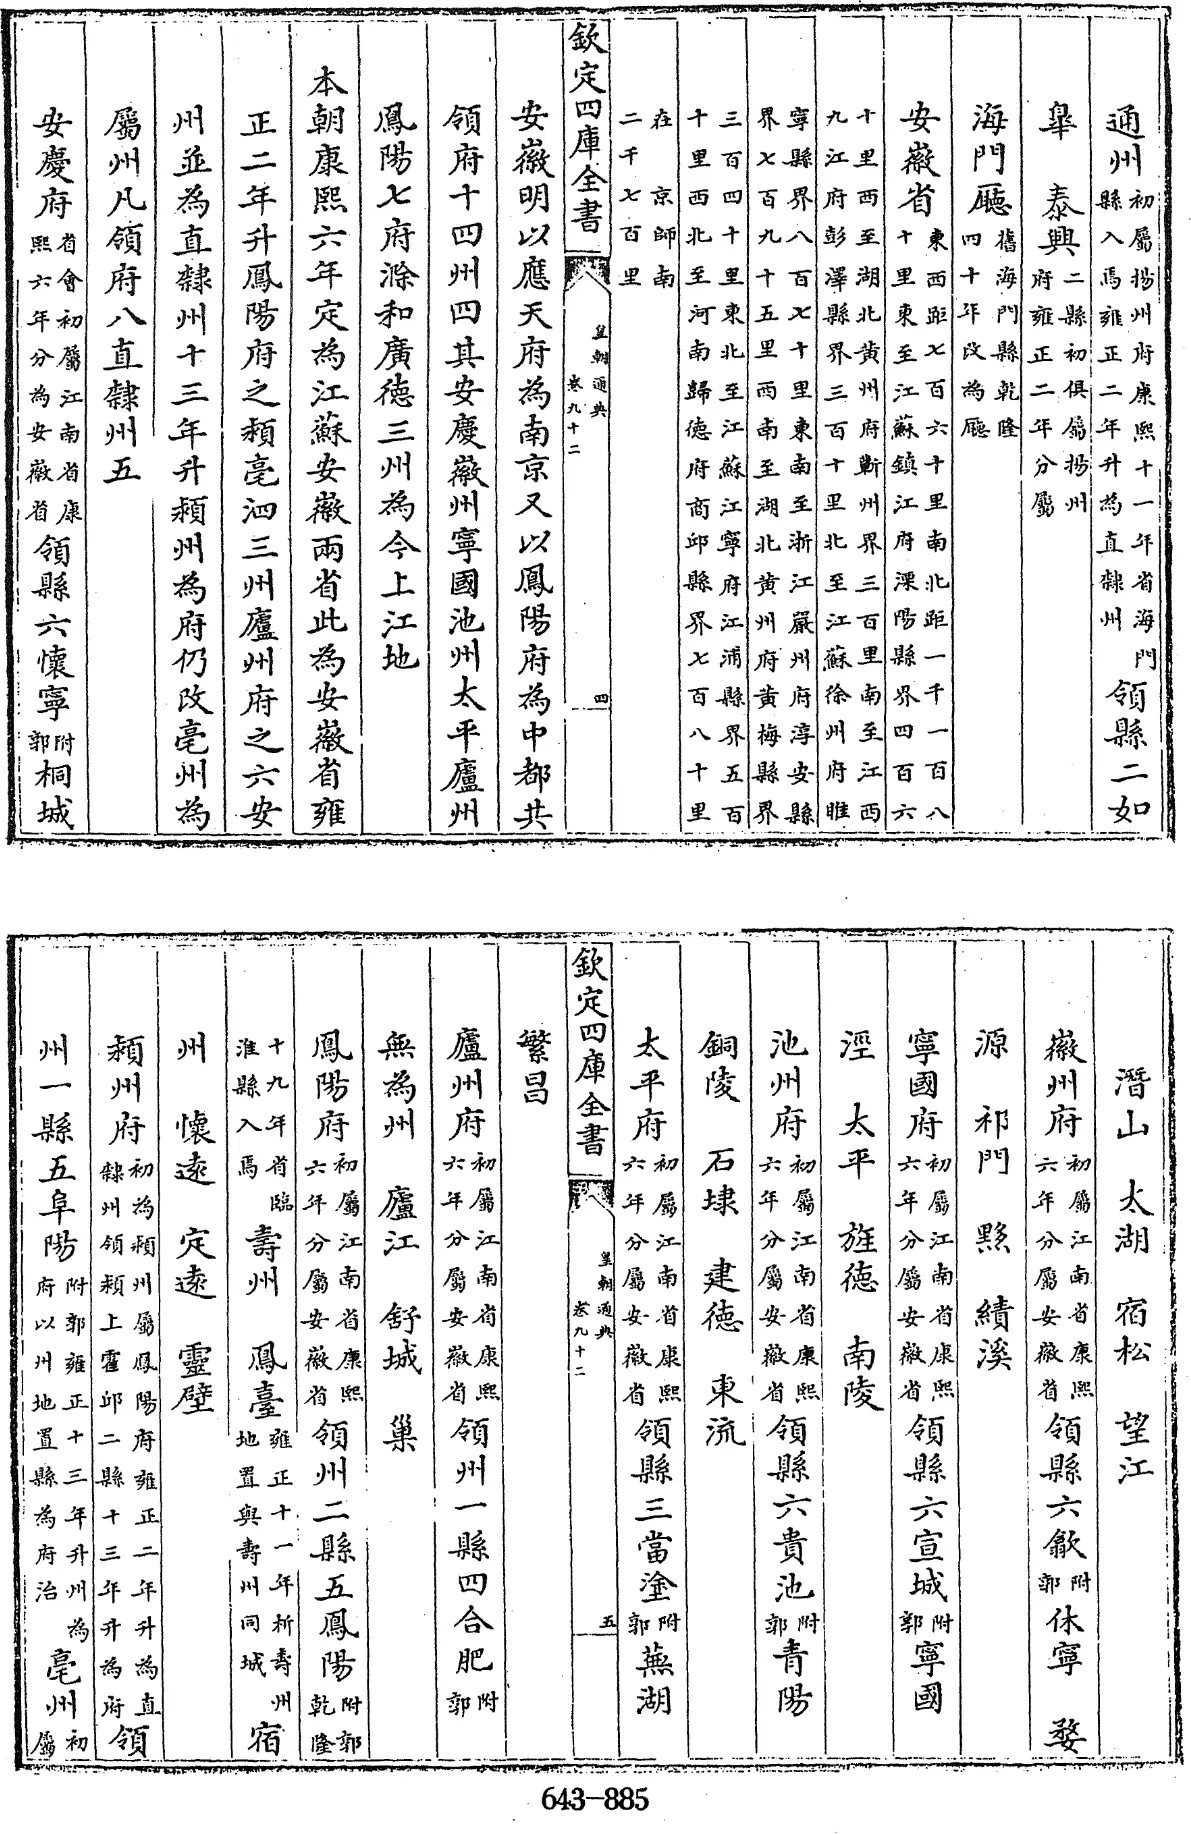 通州初屬揚州府康熙十一年省海門縣入焉雍正二年升為直隸州領縣二如
皋　泰興二縣初俱屬揚州府雍正二年分屬
海門廳舊海門縣乾隆四十年改為廳
安徽省東西距七百六十里南北距一千一百八十里東至江蘇鎮江府溧陽縣界四百六
十里西至湖北黄州府蘄州界三百里南至江西九江府彭澤縣界三百十里北至江蘇徐州府睢
寧縣界八百七十里東南至浙江嚴州府淳安縣界七百九十五里西南至湖北黄州府黄梅縣界
三百四十里東北至江蘇江寧府江浦縣界五百十里西北至河南歸德府商邱縣界七百八十里
在京師南二千七百里
欽定四庫全書　皇朝通典卷九十二　四
安徽明以應天府為南京又以鳳陽府為中都共
領府十四州四其安慶徽州寧國池州太平廬州
鳳陽七府滁和廣德三州為今上江地
本朝康熙六年定為江蘇安徽兩省此為安徽省雍
正二年升鳳陽府之潁亳泗三州廬州府之六安
州並為直隸州十三年升潁州為府仍改亳州為
屬州凡領府八直隸州五
安慶府省會初屬江南省康熙六年分為安徽省領縣六懷寧附郭桐城
潛山　太湖　宿松　望江
徽州府初屬江南省康熙六年分屬安徽省領縣六歙附郭休寧　婺
源　祁門　黟　績溪
寧國府初屬江南省康熙六年分屬安徽省領縣六宣城附郭寧國
涇　太平　旌德　南陵
池州府初屬江南省康熙六年分屬安徽省領縣六貴池附郭青陽
銅陵　石埭　建德　東流
太平府初屬江南省康熙六年分屬安徽省領縣三當塗附郭蕪湖
欽定四庫全書　皇朝通典卷九十二　五
繁昌
廬州府初屬江南省康熙六年分屬安徽省領州一縣四合肥附郭
無為州　廬江　舒城　巢
鳳陽府初屬江南省康熙六年分屬安徽省領州二縣五鳳陽附郭乾隆
十九年省臨淮縣入焉壽州　鳳臺雍正十一年析壽州地置與壽州同城宿
州　懷遠　定遠　靈壁
潁州府初為潁州屬鳳陽府雍正二年升為直隸州領潁上霍邱二縣十三年升為府領
州一縣五阜陽附郭雍正十三年升州為府以州地置縣為府治亳州初屬
643-885